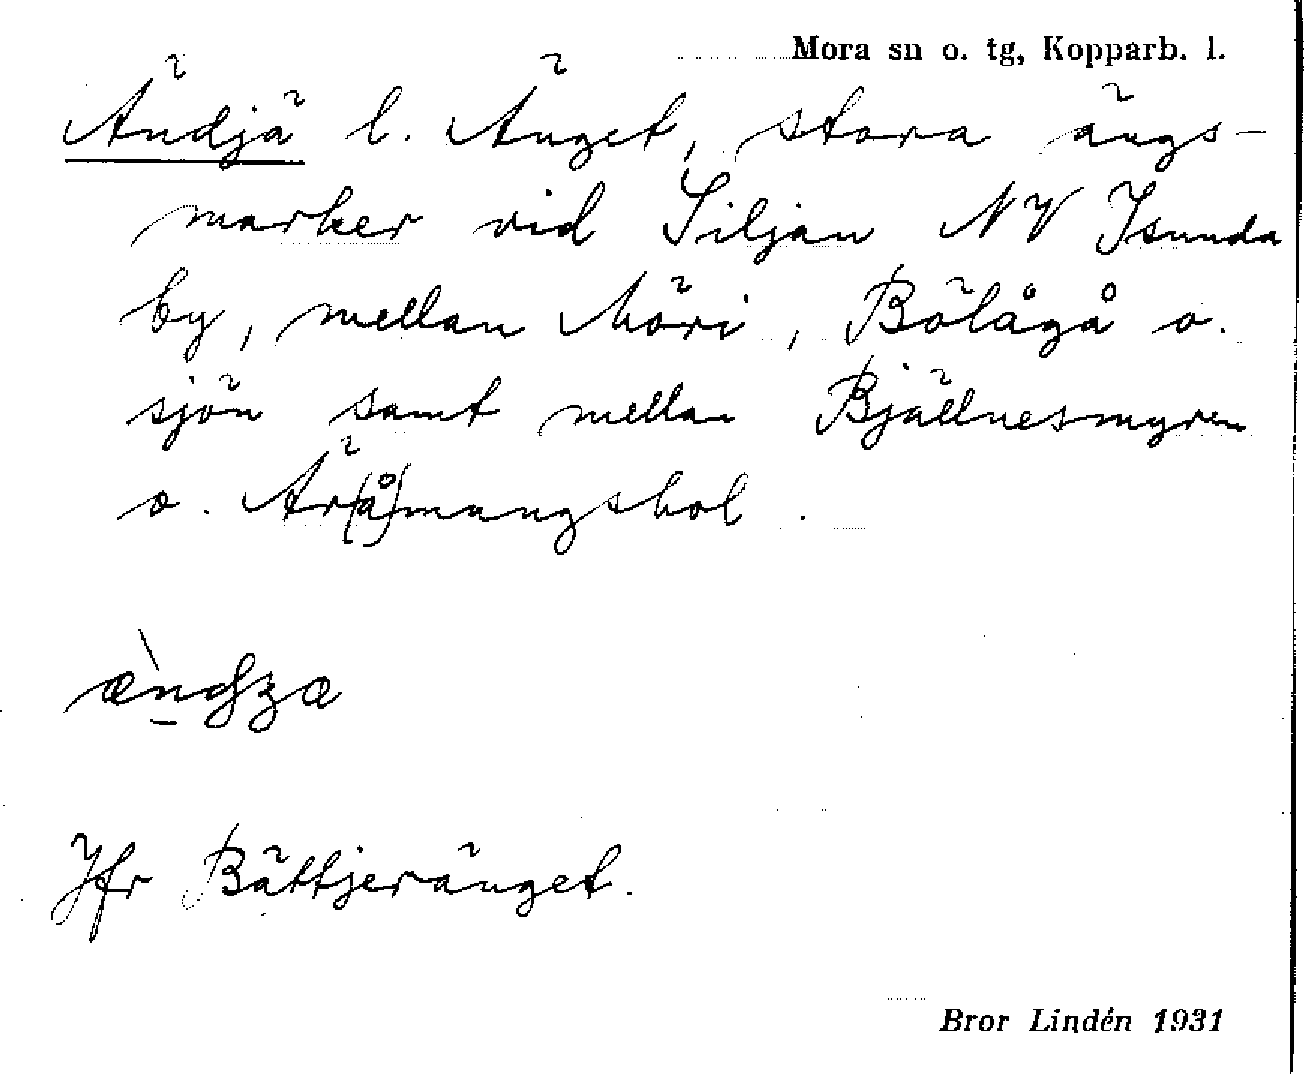 Mora sn o. tg, Kopparb. l.
Ändjä l. Änget, stora ängs-
marker vid Siljan NV Isunda
by, mellan Möri, Bölågå o.
sjön samt mellan Bjällnesmyren
o. Är(å)mungshol.
Jfr Bättjeränget.
Bror Lindén 1931